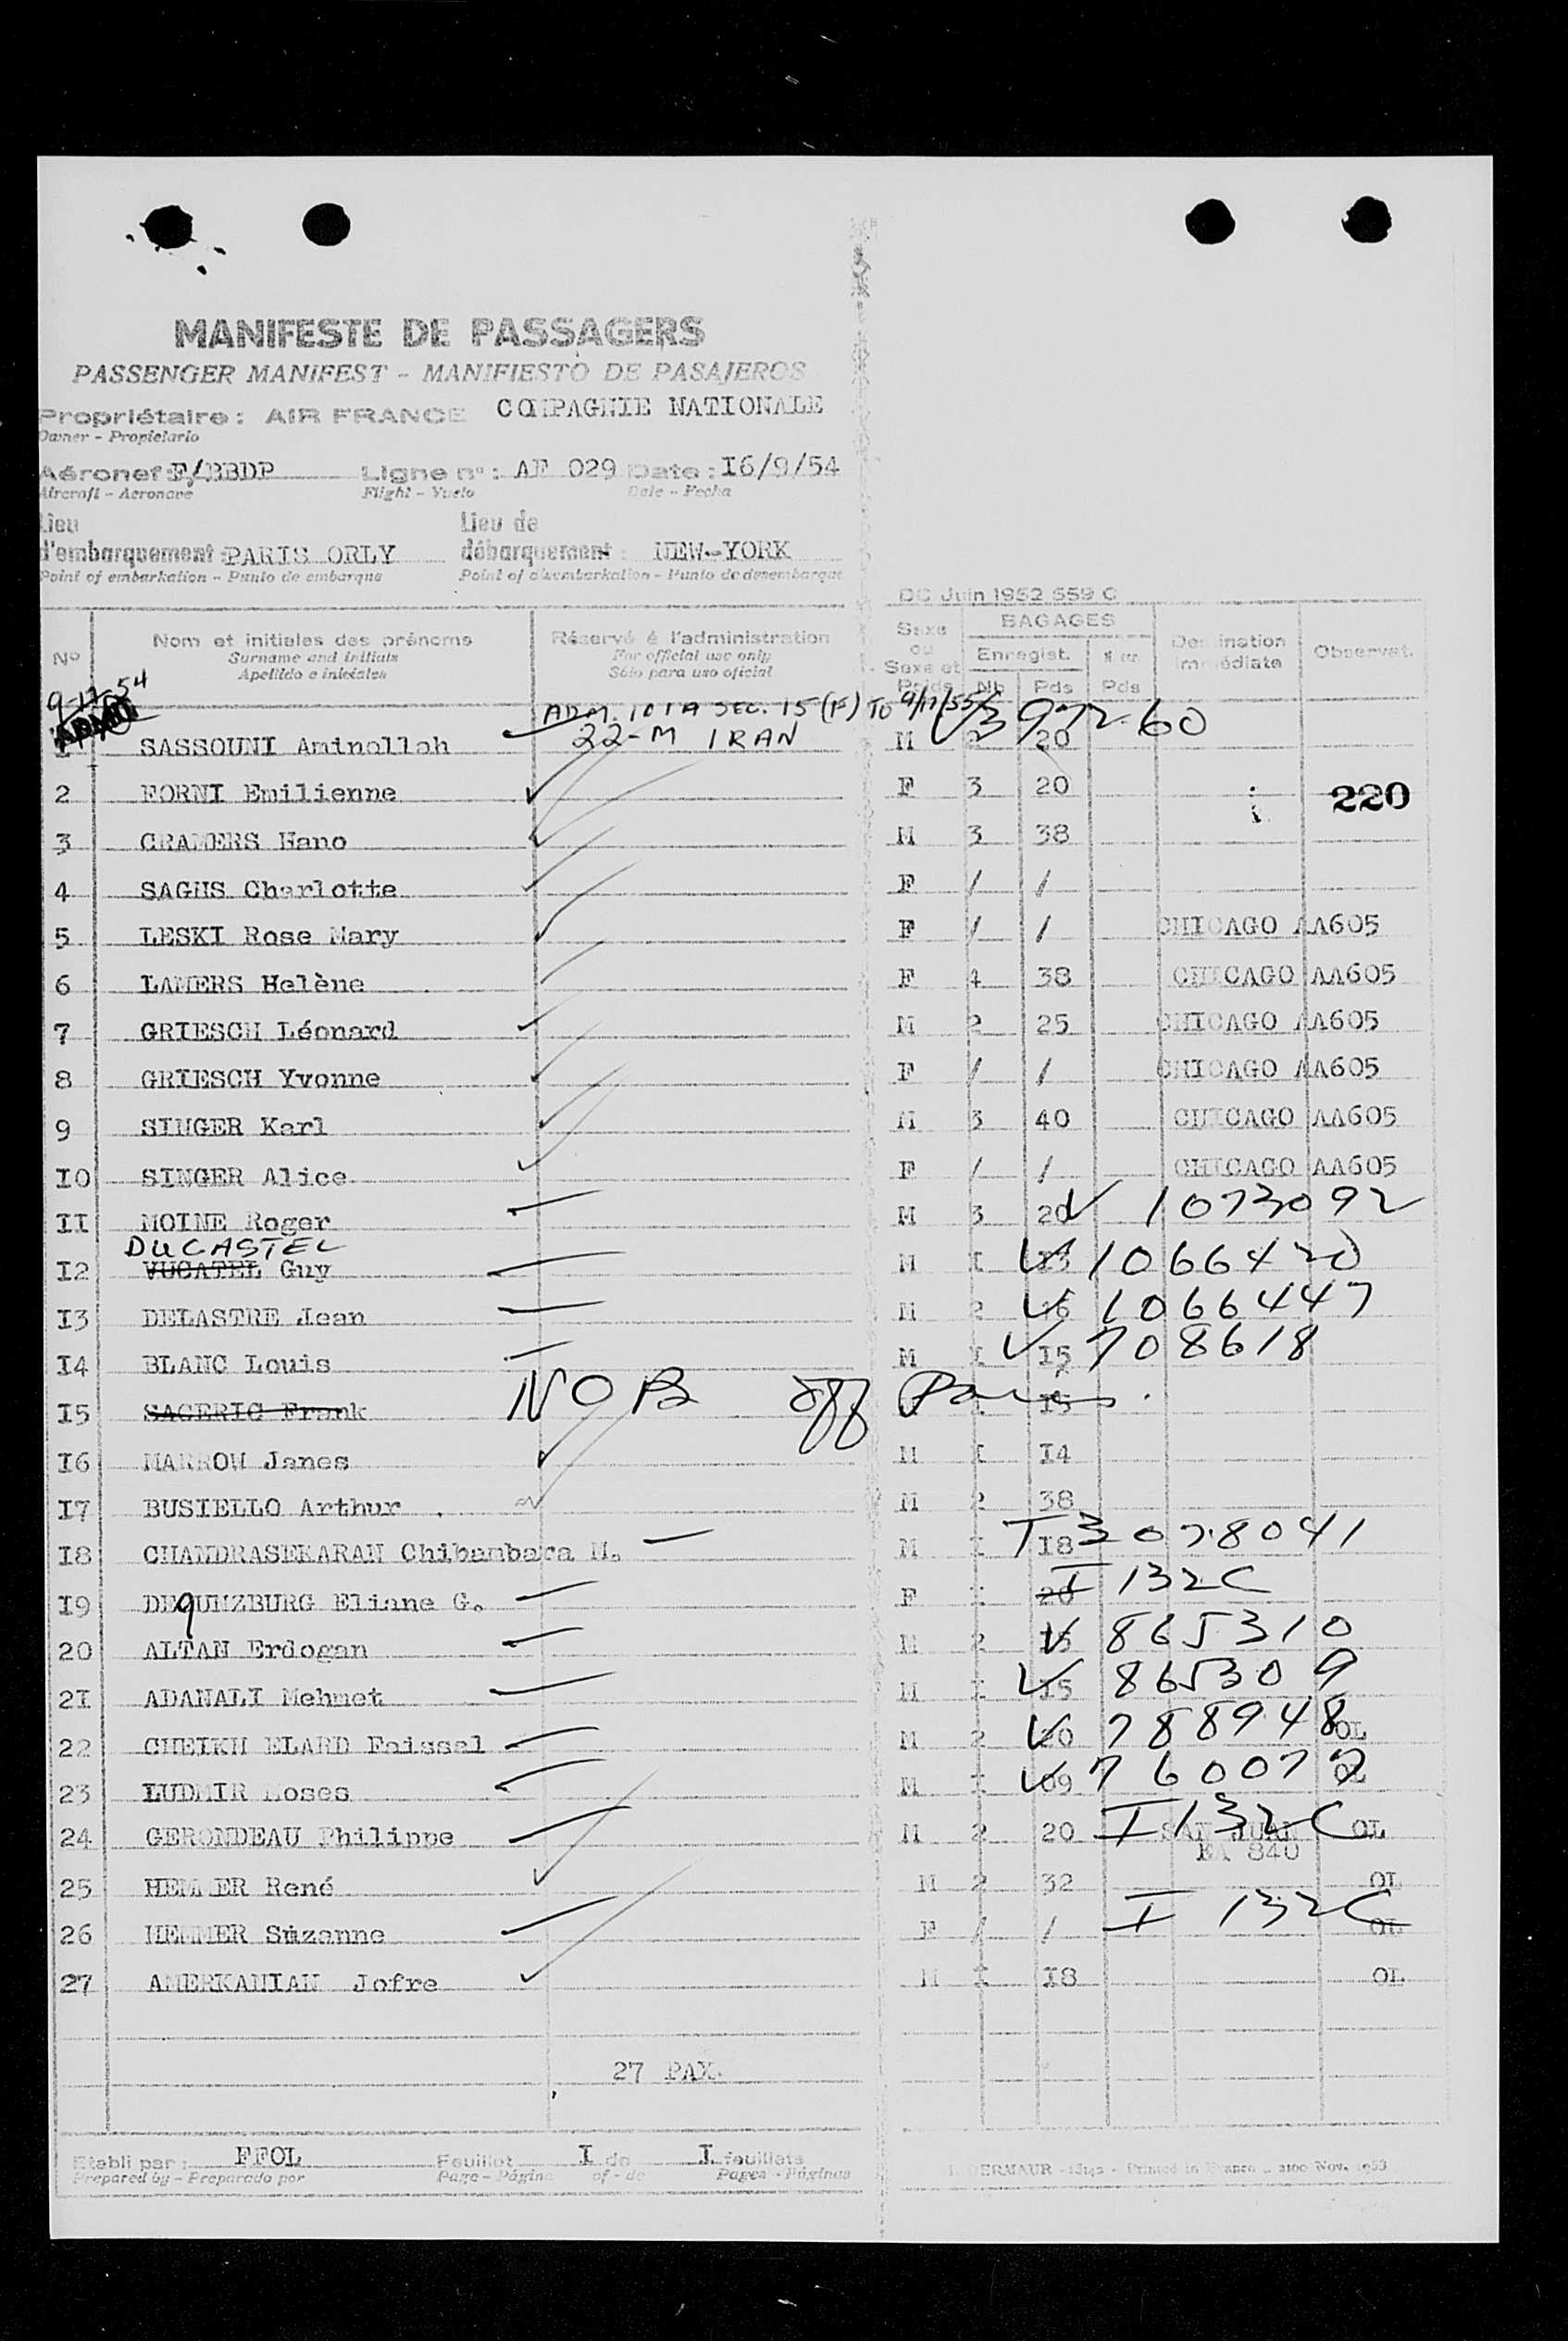 MANIFESTE DE PASSAGERS
PASSENGER MANIFEST - MANIFIESTO DE PASAJEROS
Propriétaire : AIR FRANCE COMPAGNIE NATIONALE
Owner - Propietario
Aéronef : F/BBDP Ligne n° : AF 029 Date : I6/9/54
Aircraft - Aeronave Flight - Vuelo Date - Fecha
Lieu d'embarquement : PARIS ORLY Lieu de débarquement : NEW-YORK
Point of embarkation - Punto de embarque Point of disembarkation - Punto de desembarque
DC Juin 1952 659 C
N° Nom et initiales des prénoms Réservé à l'administration Sexe ou Sexe et Poids BAGAGES Destination immédiate Observat.
Surname and initials For official use only Enregist.
Apellido e iniciales Sólo para uso oficial Nb Pds Pds
9-17-54 ADM. 101A SEC. 15 (F) TO 9/17/55 V 397260
SASSOUNI Aminollah 22-M IRAN M 2 20
2 FORNI Emilienne F 3 20 220
3 CRAMERS Hano M 3 38
4 SAGNS Charlotte F / /
5 LESKI Rose Mary F / / CHICAGO AA605
6 LAMERS Helène F 4 38 CHICAGO AA605
7 GRIESCH Léonard M 2 25 CHICAGO AA605
8 GRIESCH Yvonne F / / CHICAGO AA605
9 SINGER Karl M 3 40 CHICAGO AA605
I0 SINGER Alice F / / CHICAGO AA605
II MOINE Roger M 3 20 V 1073092
DUCASTEL
I2 VUCATEL Guy M I I3 V 1066420
I3 DELASTRE Jean M 2 I6 V 1066447
I4 BLANC Louis M I I5 V 708618
I5 SAGERIC Frank NOB off Paris I I5
I6 MARROW James M I I4
I7 BUSIELLO Arthur M 2 38
I8 CHANDRASEKARAN Chibambara M. M I I8 T 3078041
I9 DEGUNZBURG Eliane G. F I 20 I 132C
20 ALTAN Erdogan M 2 I5 V 865310
2I ADANALI Mehmet M I I5 V 865309
22 CHEIKH ELARD Faissal M 2 20 V 788948 OL
23 LUDMIR Moses M I 09 V 760077 OL
24 GERONDEAU Philippe M 2 20 I 132C SAN JUAN OL
EA 840
25 HEMMER René M 2 32 OL
26 HEMMER Suzanne F / / I 132C OL
27 AMERKANIAN Jofre M I I8 OL
27 PAX.
Etabli par : FFOL Feuillet I de I feuillets
Prepared by - Preparado por Page - Página of - de Pages - Páginas
Printed in France - 2100 Nov. 1953